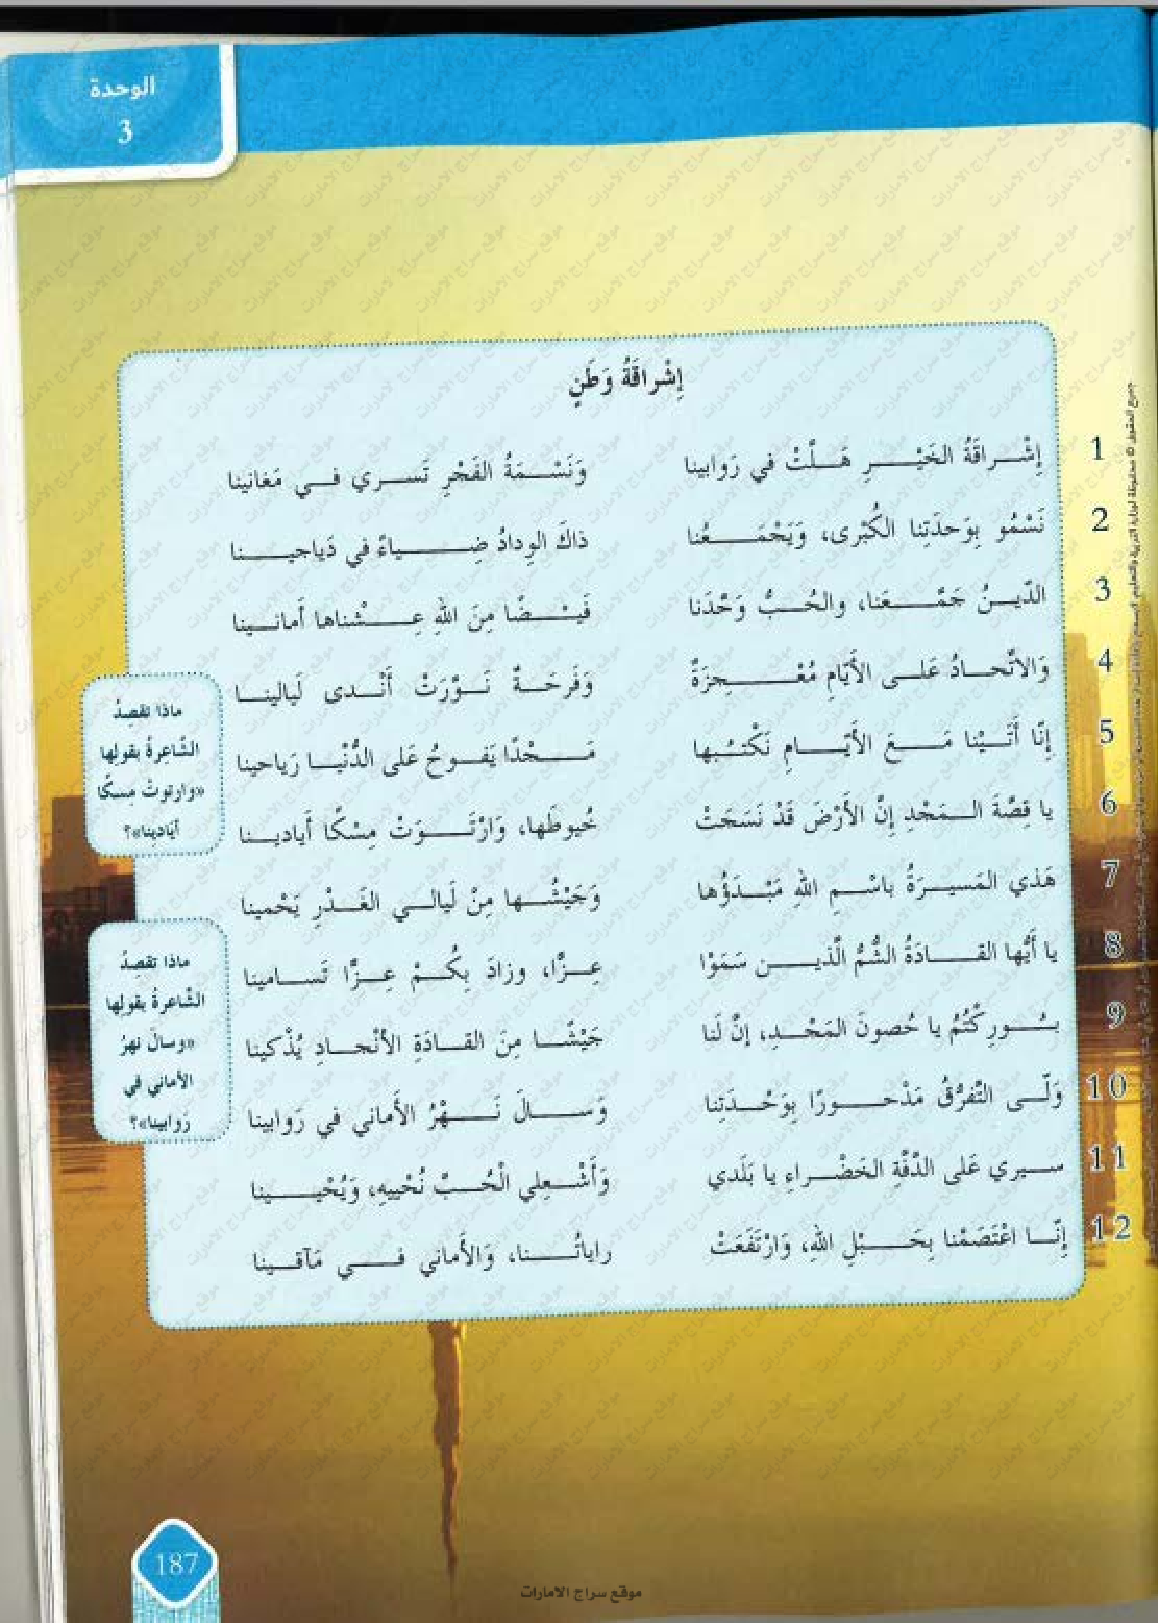 الوحدة
3
إِشْراقَةُ وَطَنٍ
1 إِشْراقَةُ الخَيْرِ هَلَّتْ في رَوابينا وَنَسْمَةُ الفَجْرِ تَسري في مَغانينا
2 نَسْمُو بِوَحدَتِنا الكُبْرى، وَيَجْمَعُنا ذاكَ الوِدادُ ضِياءً في دَياجينا
3 الدّينُ جَمَّعَنا، والحُبُّ وَحَّدَنا فَيْضًا مِنَ اللهِ عِشْناها أَمانينا
4 وَالاتِّحادُ عَلى الأَيّامِ مُعْجِزَةٌ وَفَرحَةٌ نَوَّرَتْ أَنْدى لَيالينا
5 إِنّا أَتَيْنا مَعَ الأَيّامِ نَكْتُبها مَجْدًا يَفوحُ عَلى الدُّنْيا رَياحينا
6 يا قِصَّةَ المَجْدِ إِنَّ الأَرْضَ قَدْ نَسَجَتْ خُيوطَها، وَارْتَوَتْ مِسْكًا أَيادينا
7 هَذي المَسيرَةُ باسْمِ اللهِ مَبْدَؤُها وَجَيْشُها مِنْ لَيالي الغَدْرِ يَحْمينا
8 يا أَيُّها القادَةُ الشُّمُّ الَّذين سَمَوْا عِزًّا، وزادَ بِكُمْ عِزًّا تَسامينا
9 بُورِكْتُمُ يا حُصونَ المَجْدِ، إِنَّ لَنا جَيْشًا مِنَ القادَةِ الأَنْجادِ يُذْكينا
10 وَلّى التَّفَرُّقُ مَدْحورًا بِوَحْدَتِنا وَسالَ نَهْرُ الأَماني في رَوابينا
11 سيري عَلى الدَّفَّةِ الخَضْراءِ يا بَلَدي وَأَشْعِلي الْحُبَّ نُحْييهِ، وَيُحْيينا
12 إِنّا اعْتَصَمْنا بِحَبْلِ اللهِ، وَارْتَفَعَتْ راياتُنا، وَالأَماني في مَآقينا
ماذا تقصِدُ
الشّاعِرةُ بقولها
«وارتوتْ مِسكًا
أيادينا»؟
ماذا تقصِدُ
الشّاعرةُ بقولها
«وسالَ نهرُ
الأماني في
رَوابينا»؟
187
موقع سراج الامارات